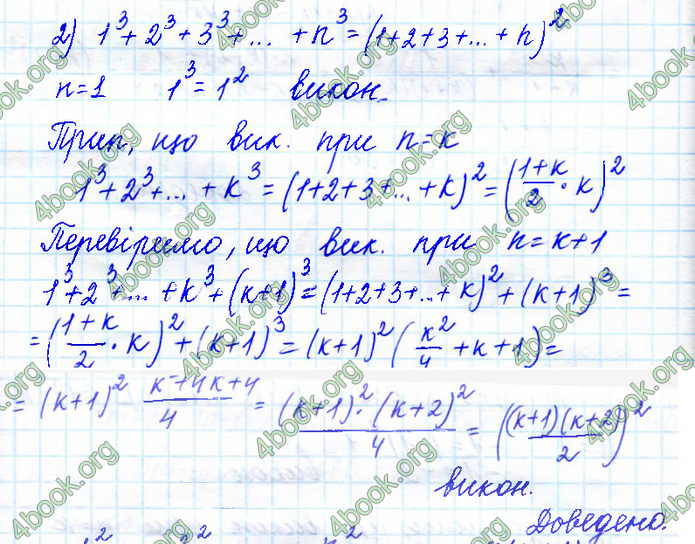 2) 1³ + 2³ + 3³ + ... + n³ = (1+2+3+...+n)²
n=1   1³ = 1²   викон.
Прип, що вик. при n=k
1³+2³+...+k³ = (1+2+3+...+k)² = ((1+k)/2 · k)²
Перевіримо, що вик. при n=k+1
1³+2³+...+k³+(k+1)³ = (1+2+3+...+k)² + (k+1)³ =
= ((1+k)/2 · k)² + (k+1)³ = (k+1)² (k²/4 + k+1) =
= (k+1)² (k²+4k+4)/4 = ((k+1)² · (k+2)²)/4 = (((k+1)(k+2))/2)²
викон.
Доведено.
4book.org